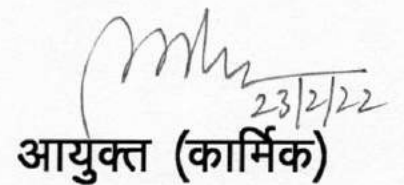 23/2/22
आयुक्त (कार्मिक)